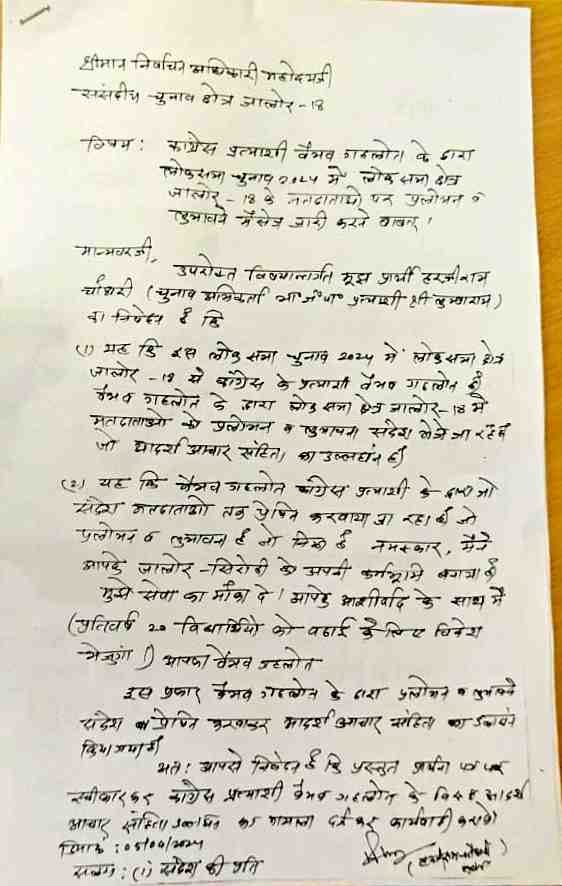 श्रीमान निर्वाचन अधिकारी महोदयजी
संसदीय चुनाव क्षेत्र जालोर - 18
विषय : कांग्रेस प्रत्याशी वैभव गहलोत के द्वारा
लोकसभा चुनाव 2024 में लोकसभा क्षेत्र
जालोर - 18 के मतदाताओ पर प्रलोभन व
लुभावने मैसेज जारी करने बाबत ।
मान्यवरजी,
उपरोक्त विषयान्तर्गत मुझ प्रार्थी हरजीराम
चौधरी (चुनाव अभिकर्ता भा॰ज॰पा॰ प्रत्याशी श्री लुम्बाराम)
का निवेदन है कि
(1) यह कि इस लोकसभा चुनाव 2024 में लोकसभा क्षेत्र
जालोर - 18 से कांग्रेस के प्रत्याशी वैभव गहलोत है।
वैभव गहलोत के द्वारा लोकसभा क्षेत्र जालोर - 18 में
मतदाताओ को प्रलोभन व लुभावना संदेश भेजे जा रहे है
जो आदर्श आचार संहिता का उल्लघंन है।
(2) यह कि वैभव गहलोत कांग्रेस प्रत्याशी के द्वारा जो
संदेश मतदाताओ तक प्रेषित करवाया जा रहा है जो
प्रलोभन व लुभावना है जो निम्न है नमस्कार, मैने
आपके जालोर - सिरोही को अपनी कर्मभूमि बनाया है
मुझे सेवा का मौका दे। आपके आशीर्वाद के साथ मैं
(प्रतिवर्ष 20 विद्यार्थियों को पढाई के लिए विदेश
भेजुगां।) आपका वैभव गहलोत
इस प्रकार वैभव गहलोत के द्वारा प्रलोभन व लुभावने
संदेश प्रेषित करवाकर आदर्श आचार संहिता का उल्लघंन
किया गया है।
अत: आपसे निवेदन है कि प्रस्तुत प्रार्थना पत्र
स्वीकार कर कांग्रेस प्रत्याशी वैभव गहलोत के विरूद्ध आदर्श
आचार संहिता का मामला दर्ज कर कार्यवाही करावे।
दिनांक : 05/04/2024
सलग्न : (1) संदेश की प्रति